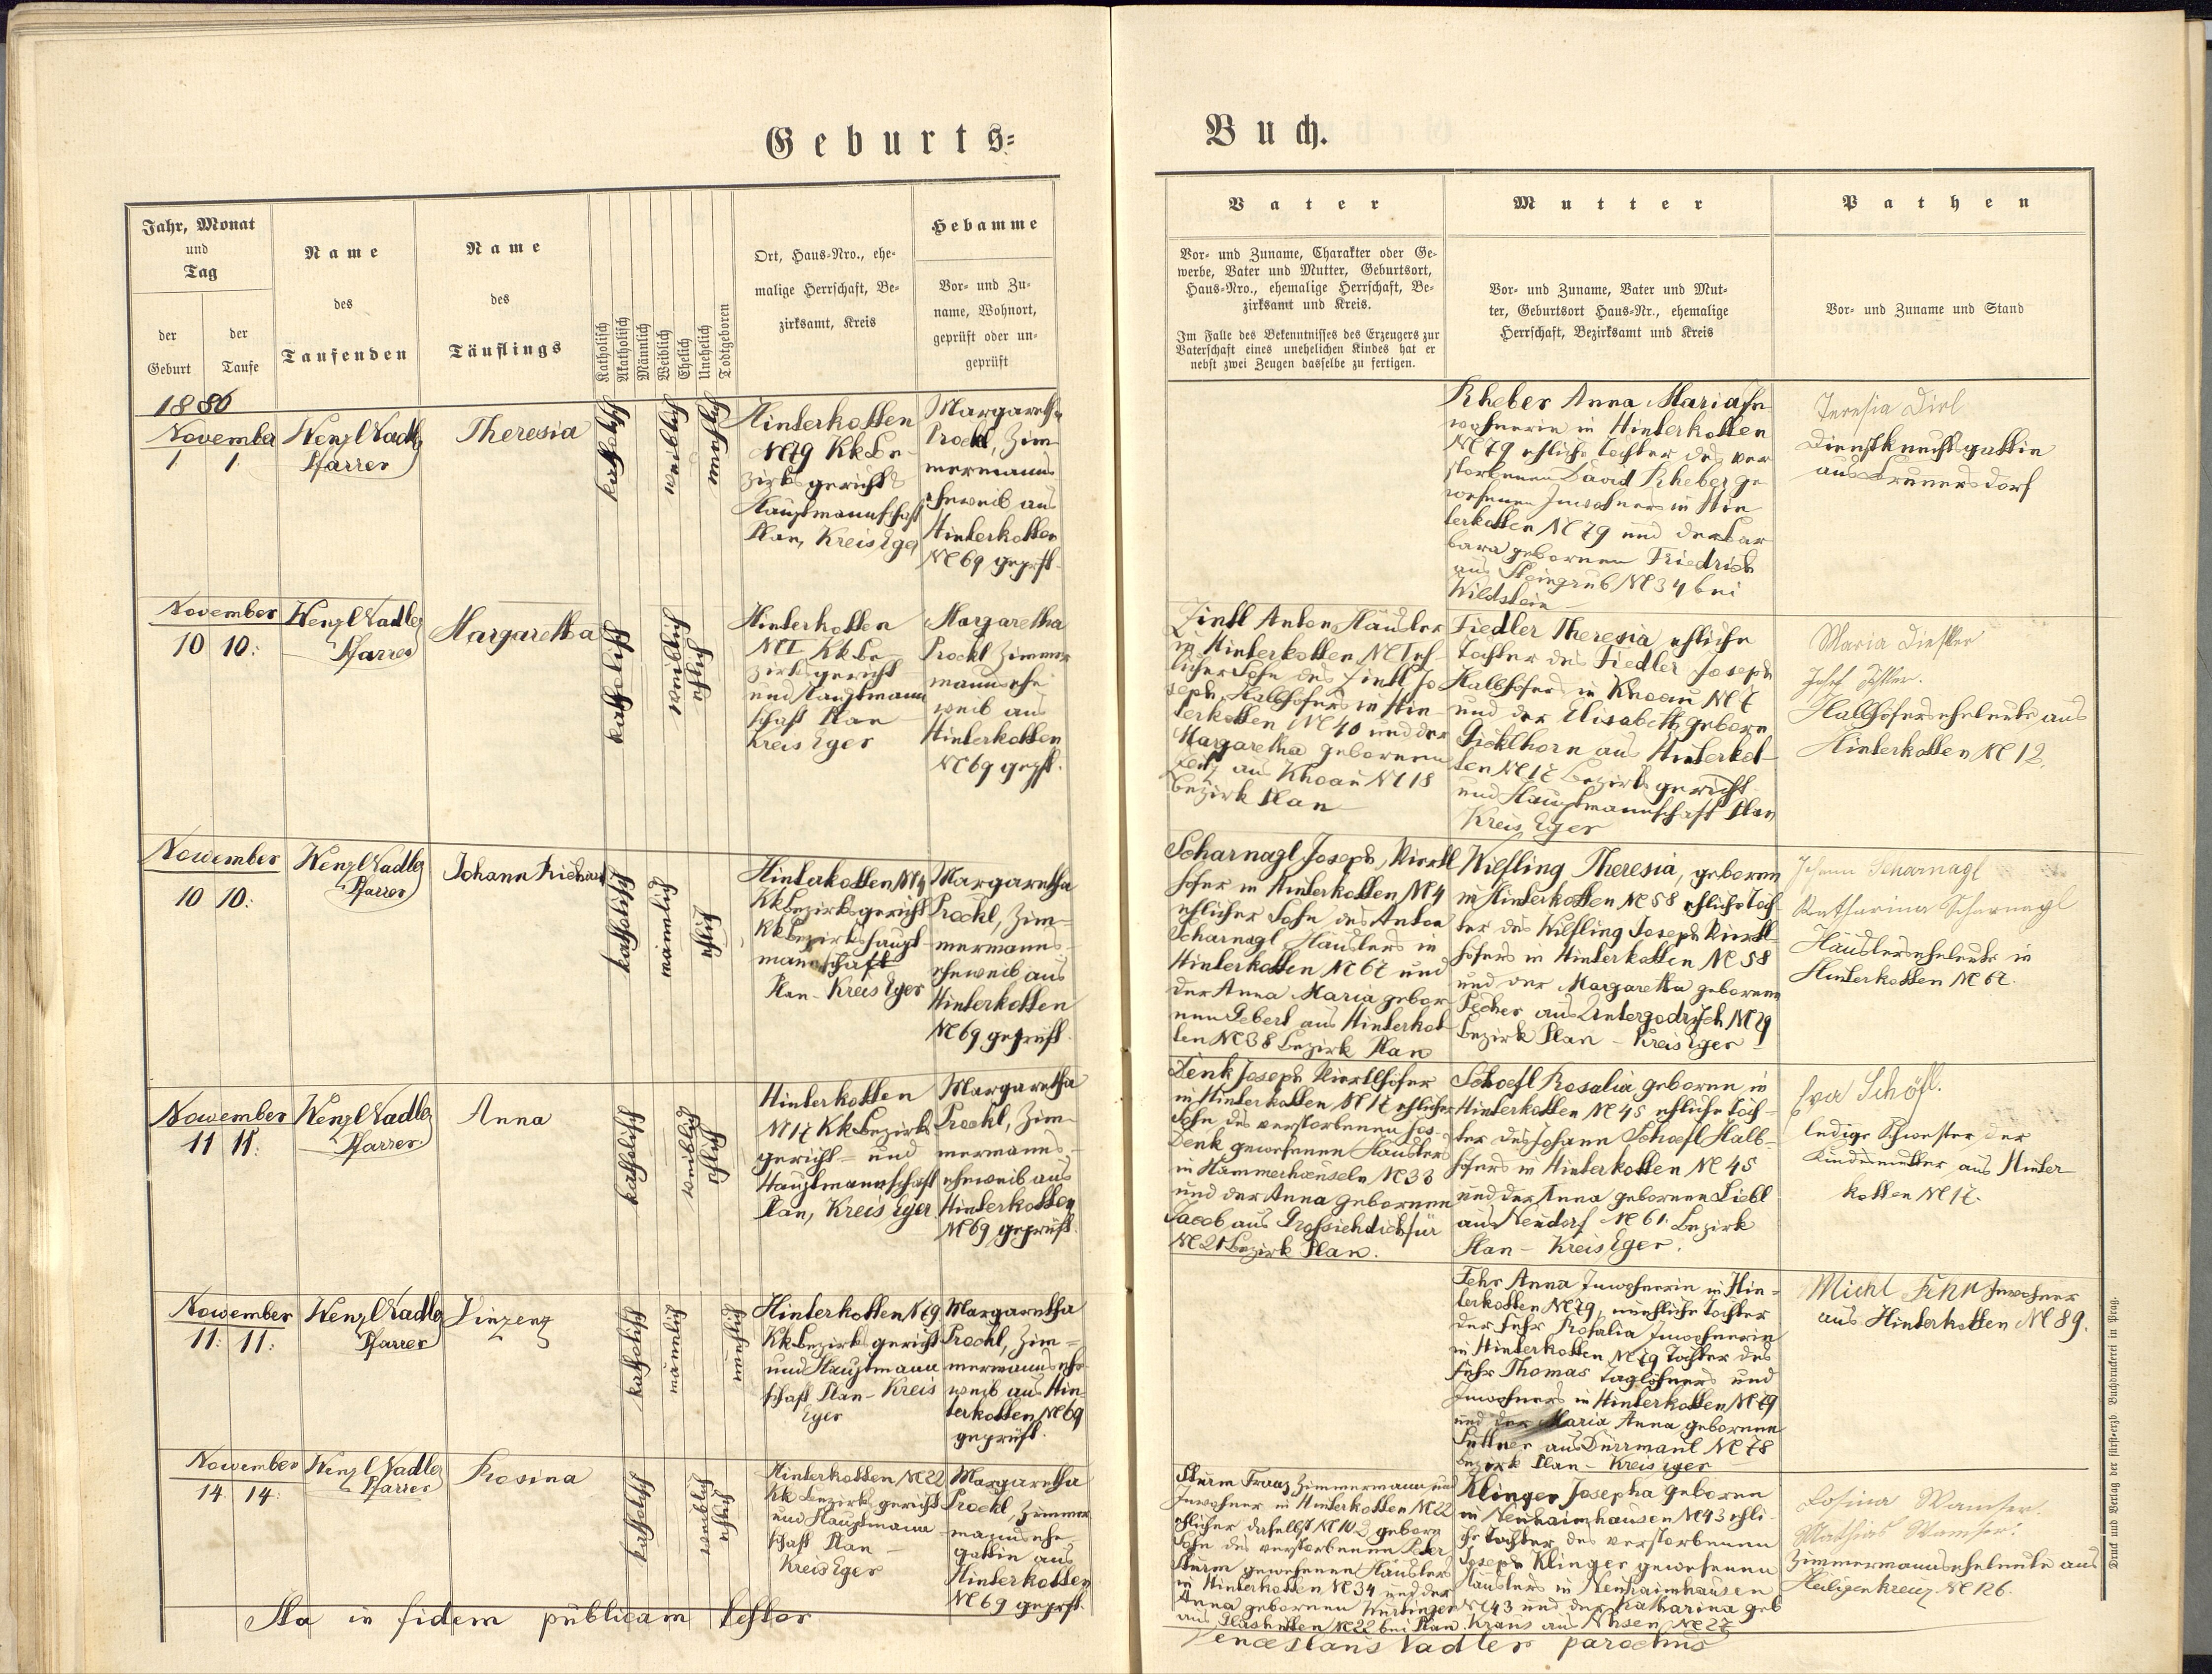 Geburts=
Buch.
Jahr, Monat
und
Tag
der
Geburt
der
Taufe
Name
des
Taufenden
Name
des
Täuflings
Katholisch
Akatholisch
Männlich
Weiblich
Ehelich
Unehelich
Todtgeboren
Ort, Haus-Nro., ehe-
malige Herrschaft, Be-
zirksamt, Kreis
Hebamme
Vor- und Zu-
name, Wohnort,
geprüft oder un-
geprüft
Vater
Vor- und Zuname, Charakter oder Ge-
werbe, Vater und Mutter, Geburtsort,
Haus-Nro., ehemalige Herrschaft, Be-
zirksamt und Kreis.
Im Falle des Bekenntnisses des Erzeugers zur
Vaterschaft eines unehelichen Kindes hat er
nebst zwei Zeugen dasselbe zu fertigen.
Mutter
Vor- und Zuname, Vater und Mut-
ter, Geburtsort Haus-Nr., ehemalige
Herrschaft, Bezirksamt und Kreis
Pathen
Vor- und Zuname und Stand
1886
November
1. 1.
Wenzl Nadler
Pfarrer
Theresia
katholisch
weiblich
unehlich
Hinterkotten
N79 KkBe-
zirksgericht
Hauptmannschaft
Plan, Kreis Eger
Margaretha
Prockl, Zim-
mermanns
eheweib aus
Hinterkotten
N 69 geprft.
Rheber Anna Maria In-
wohnerin in Hinterkotten
N 79 ehliche Tochter des ver
storbenen David Rheber ge
wesenen Inwohners in Hin
terkotten N 79 und der Bar
bara gebornen Friedrich
aus Steingrub N 34 bei
Wildstein
Teresia Dirl
Dienstknechtsgattin
aus
November
10 10.
Wenzl Nadler
Pfarrer
Margaretha
katholisch
weiblich
ehlich
Hinterkotten
N 1 KkBe-
zirksgericht
und Hauptmann
schaft Plan
Kreis Eger
Margaretha
Prockl Zimmer
manns ehe
weib aus
Hinterkotten
N 69 geprft.
Zintl Anton Häusler
in Hinterkotten N 1 eh-
licher Sohn des Zintl Jo
seph, Halbhöfers in Hin
terkotten N 40 und der
Margaretha gebornen
aus Khoau N 18
Bezirk Plan
Fiedler Theresia ehliche
Tochter des Fiedler Joseph
Halbhöfers in Khoau N 7
und der Elisabeth geborn
Gicklhorn aus Hinterkot-
ten N 17 Bezirksgericht
und Hauptmannschaft Plan
Kreis Eger
Maria
Josef
Halbhöferseheleute aus
Hinterkotten N 12.
November
10 10.
Wenzl Nadler
Pfarrer
Johann Richard
katholisch
männlich
ehlich
Hinterkotten N 4
Kk Bezirksgericht
Kk Bezirkshaupt-
mannschaft
Plan - Kreis Eger
Margaretha
Prockl, Zim-
mermanns-
eheweib aus
Hinterkotten
N 69 geprüft.
Scharnagl Joseph, Viertl
höfer in Hinterkotten N 4
ehlicher Sohn des Anton
Scharnagl Häuslers in
Hinterkotten N 67 und
der Anna Maria gebor
nen Gebert aus Hinterkot
ten N 38 Bezirk Plan
Kiesling Theresia, geboren
in Hinterkotten N 58 ehliche Toch-
ter des Kiesling Joseph Viertl
höfers in Hinterkotten N 58
und der Margaretha gebornen
Fischer aus Untergodrisch N 29
Bezirk Plan - Kreis Eger
Johann Scharnagl
Katharina Scharnagl
Häuslerseheleute in
Hinterkotten N 67.
November
11 11.
Wenzl Nadler
Pfarrer.
Anna
katholisch
weiblich
ehlich
Hinterkotten
N 17 Kk Bezirks
gericht und
Hauptmannschaft
Plan, Kreis Eger
Margaretha
Prockl, Zim-
mermanns-
eheweib aus
Hinterkotten
N 69 geprüft.
Denk Joseph Viertlhöfer
in Hinterkotten, N 17 ehlicher
Sohn des verstorbenen Jos.
Denk gewesenen Häuslers
in Hammerhæuseln N 33
und der Anna gebornen
Jacob aus Grossichdichfür
N 21 Bezirk Plan.
Schoefl Rosalia geboren in
Hinterkotten N 45 ehliche Toch-
ter des Johann Schoefl Halb-
höfers in Hinterkotten N 45
und der Anna gebornen Liebl
aus Neudorf N 61. Bezirk
Plan - Kreis Eger.
Eva Schöfl.
ledige Schwester der
Kindesmutter aus Hinter
kotten N 17.
November
11. 11.
Wenzl Nadler
Pfarrer
Vinzenz
katholisch
männlich
unehlich
Hinterkotten N 79
Kk Bezirksgericht
und Hauptmann
schaft Plan - Kreis
Eger
Margaretha
Prockl, Zim-
mermanns ehe
weib aus Hin
terkotten N 69
geprüft.
Fehr Anna Inwohnerin in Hin-
terkotten N 79, unehliche Tochter
der Fehr Rosalia Inwohnerin
in Hinterkotten N 79 Tochter des
Fehr Thomas Taglöhners und
Inwohners in Hinterkotten N 79
und der Maria Anna gebornen
aus Dürrmaul N 78
Bezirk Plan - Kreis Eger
Michl Fehr Inwohner
aus Hinterkotten N 89.
November
14. 14.
Wenzl Nadler
Pfarrer
Rosina
katholisch
weiblich
ehlich
Hinterkotten N 22
Kk Bezirksgericht
und Hauptmann
schaft Plan -
Kreis Eger
Margaretha
Prockl, Zimmer
manns ehe-
gattin aus
Hinterkotten
N 69 geprft.
Sturm Franz Zimmermann und
Inwohner in Hinterkotten N 22
ehlicher daselbst N 102 geborn
Sohn des verstorbenen Peter
Sturm gewesenen Häuslers
in Hinterkotten N 34 und der
Anna gebornen
aus Glashütten N 22 bei Plan
Klinger Josepha geboren
in Neuhaimhausen N 43 ehli-
che Tochter des verstorbenen
Joseph Klinger gewesenen
Häuslers in Neuhaimhausen
N 43 und der Katharina geb
Kraus aus N 27
Rosina Wamser.
Mathias Wamser.
Zimmermannseheleute aus
Heiligenkreuz N 126.
Ita in fidem publicam testor
Venceslaus Nadler parochus
Druck und Verlag der fürst-erzb. Buchdruckerei in Prag.